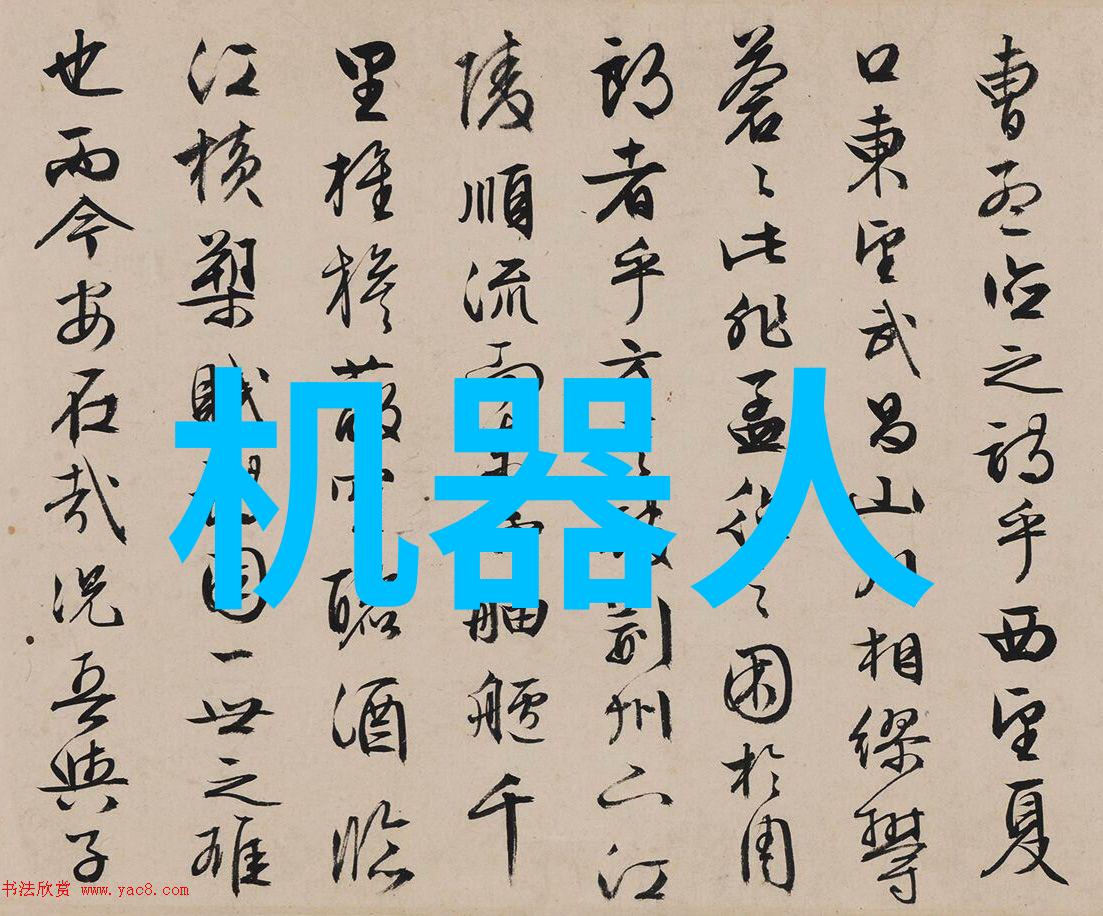 曹孟德之詩乎西望夏
口東望武昌山川相繆鬱
蒼々此非孟德之困於周
郎者乎方其破荊州下江
陵順流而東舳艫千
里旌旗蔽空釃酒臨
江橫槊賦詩固一世之雄
也而今安在哉況吾與子
机器人
书法欣赏 www.yac8.com